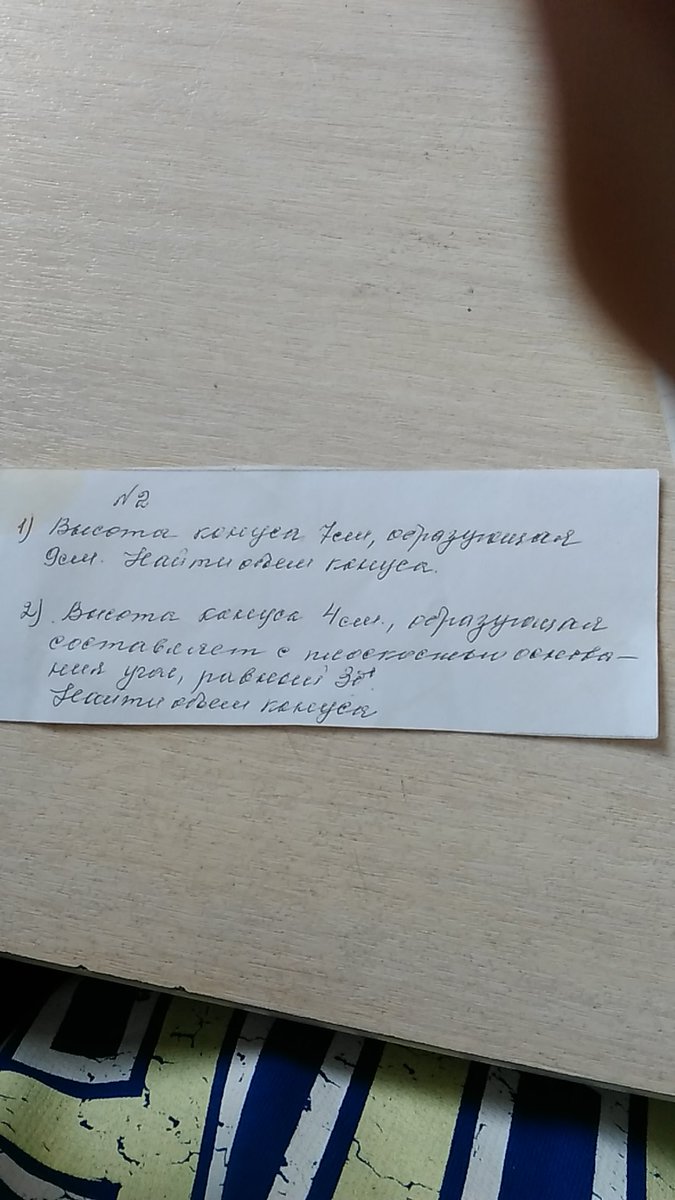 №2
1) Высота конуса 7см, образующая
9см. Найти объем конуса.
2) Высота конуса 4см., образующая
составляет с плоскостью основа-
ния угол, равный 30°
Найти объем конуса